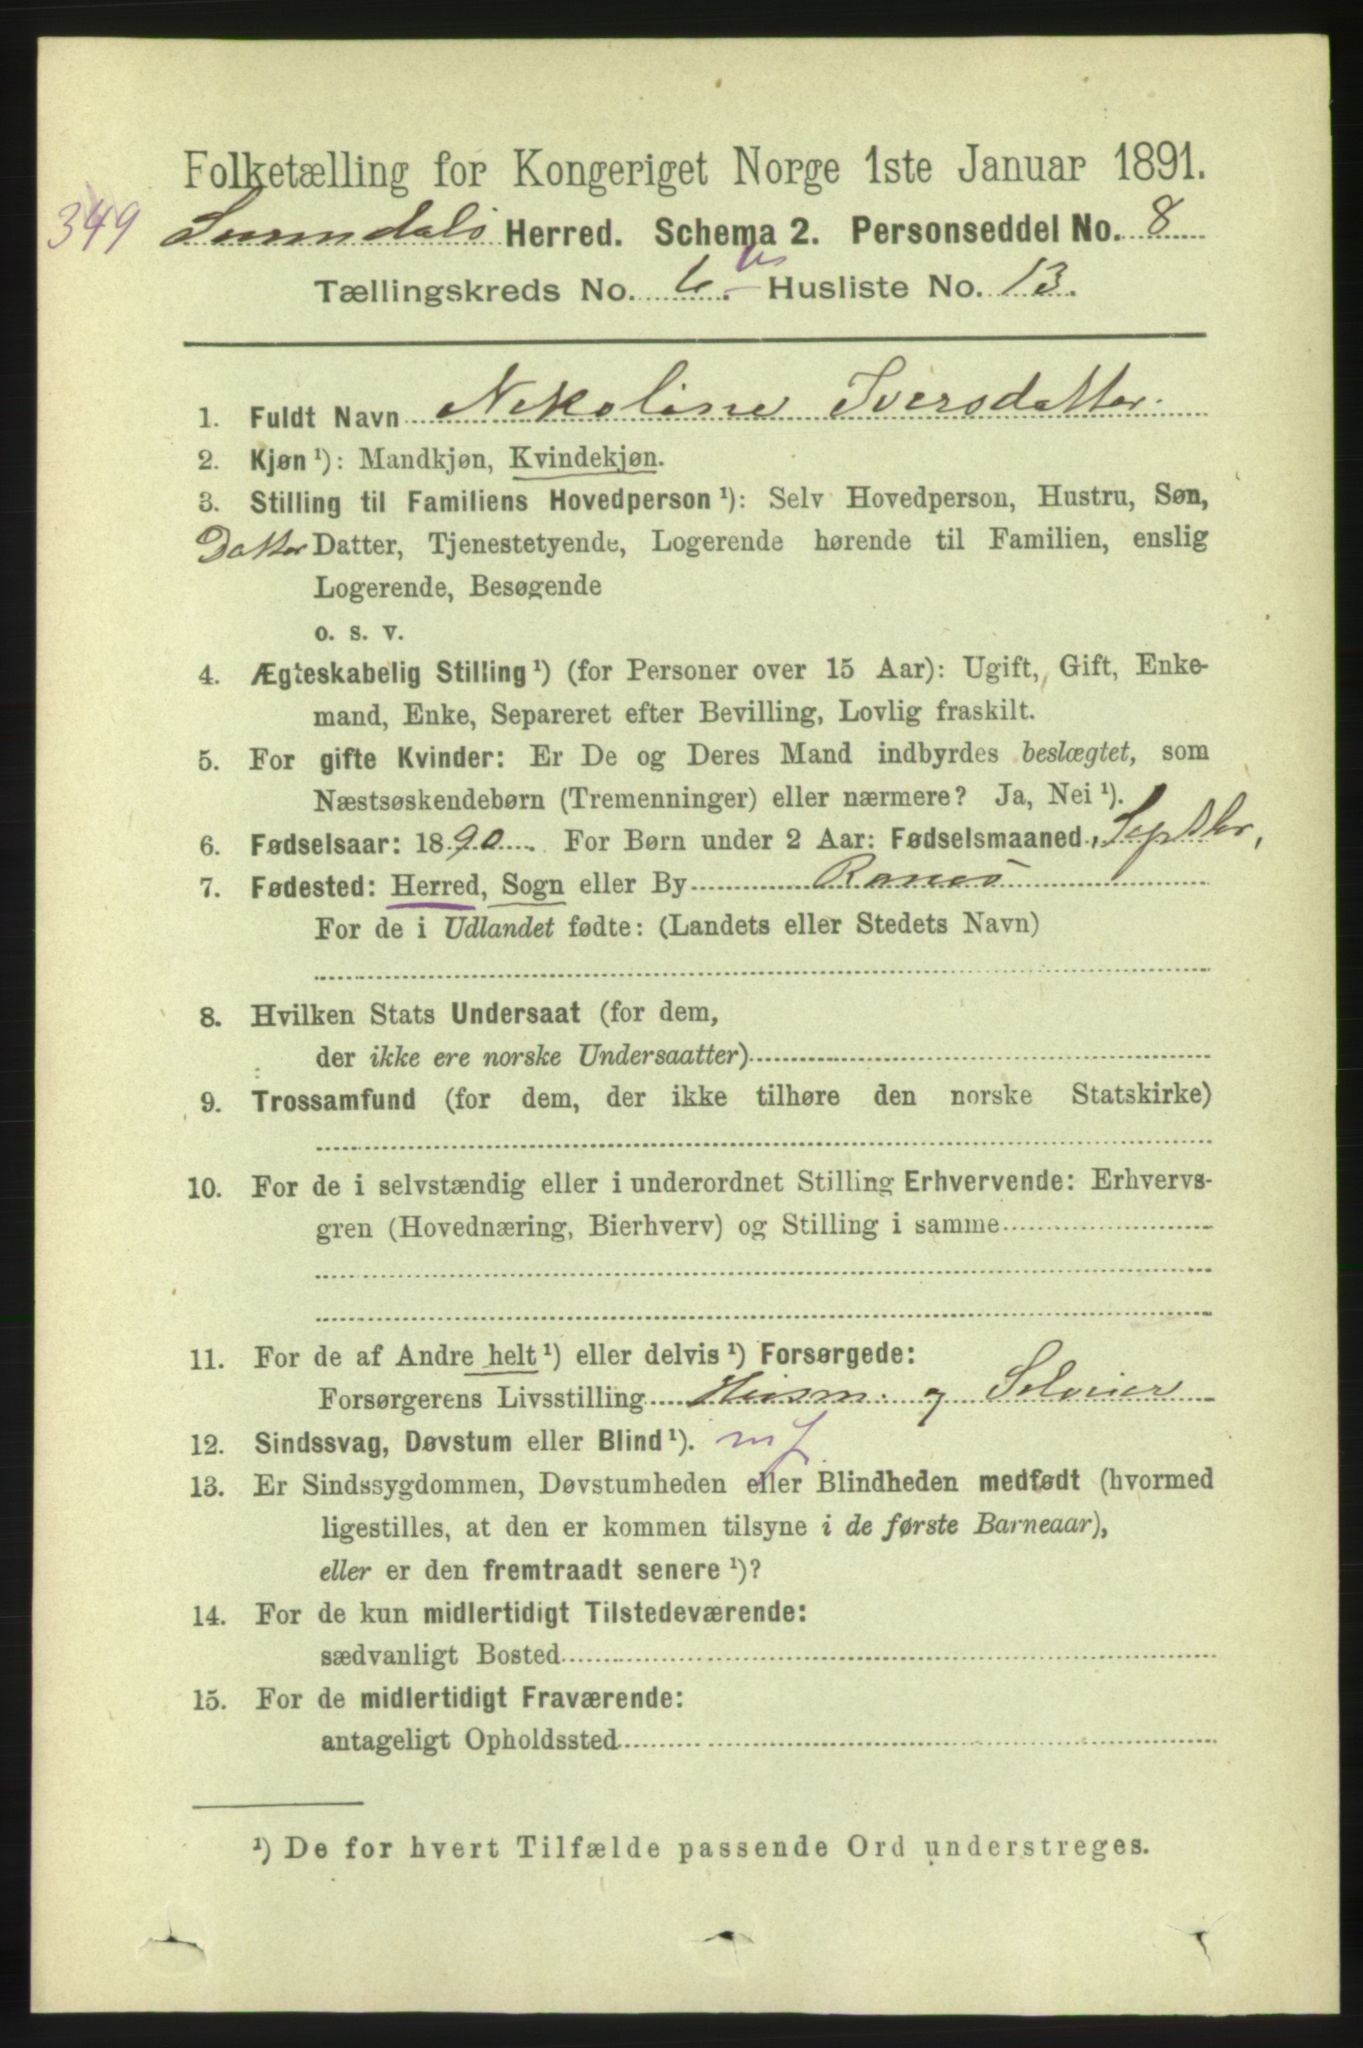 Folketælling for Kongeriget Norge 1ste Januar 1891.
349 Surendals Herred. Schema 2. Personseddel No. 8
Tællingskreds No. 6. Husliste No. 13.
1. Fuldt Navn Nikoline Iversdatter.
2. Kjøn ¹): Mandkjøn, Kvindekjøn.
3. Stilling til Familiens Hovedperson ¹): Selv Hovedperson, Hustru, Søn,
Datter Datter, Tjenestetyende, Logerende hørende til Familien, enslig
Logerende, Besøgende
o. s. v.
4. Ægteskabelig Stilling ¹) (for Personer over 15 Aar): Ugift, Gift, Enke-
mand, Enke, Separeret efter Bevilling, Lovlig fraskilt.
5. For gifte Kvinder: Er De og Deres Mand indbyrdes beslægtet, som
Næstsøskendebørn (Tremenninger) eller nærmere? Ja, Nei ¹).
6. Fødselsaar: 1890. For Børn under 2 Aar: Fødselsmaaned Septbr,
7. Fødested: Herred, Sogn eller By Ranes
For de i Udlandet fødte: (Landets eller Stedets Navn)
8. Hvilken Stats Undersaat (for dem,
der ikke ere norske Undersaatter)
9. Trossamfund (for dem, der ikke tilhøre den norske Statskirke)
10. For de i selvstændig eller i underordnet Stilling Erhvervende: Erhvervs-
gren (Hovednæring, Bierhverv) og Stilling i samme
11. For de af Andre helt ¹) eller delvis ¹) Forsørgede:
Forsørgerens Livsstilling Husm. og Selveier
12. Sindssvag, Døvstum eller Blind ¹).
13. Er Sindssygdommen, Døvstumheden eller Blindheden medfødt (hvormed
ligestilles, at den er kommen tilsyne i de første Barneaar),
eller er den fremtraadt senere ¹)?
14. For de kun midlertidigt Tilstedeværende:
sædvanligt Bosted
15. For de midlertidigt Fraværende:
antageligt Opholdssted
¹) De for hvert Tilfælde passende Ord understreges.